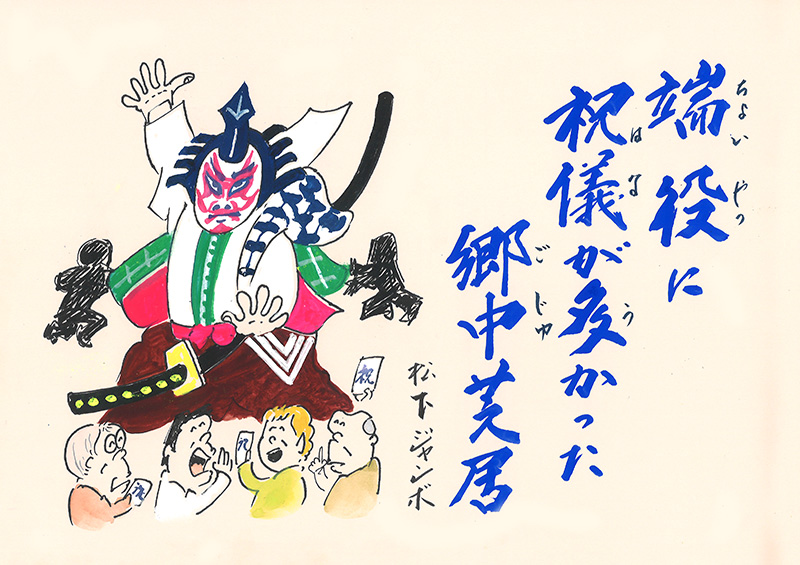 端役に
ちょい やっ
祝儀が多かった
はな う
郷中芝居
ごじゅ
松下ジャンボ
祝